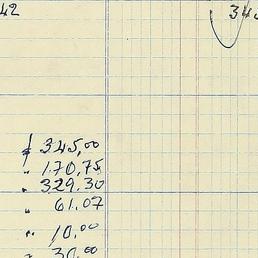 42
$ 345,00
" 170,75
" 329.30
" 61.07
" 10.00
" 30.00